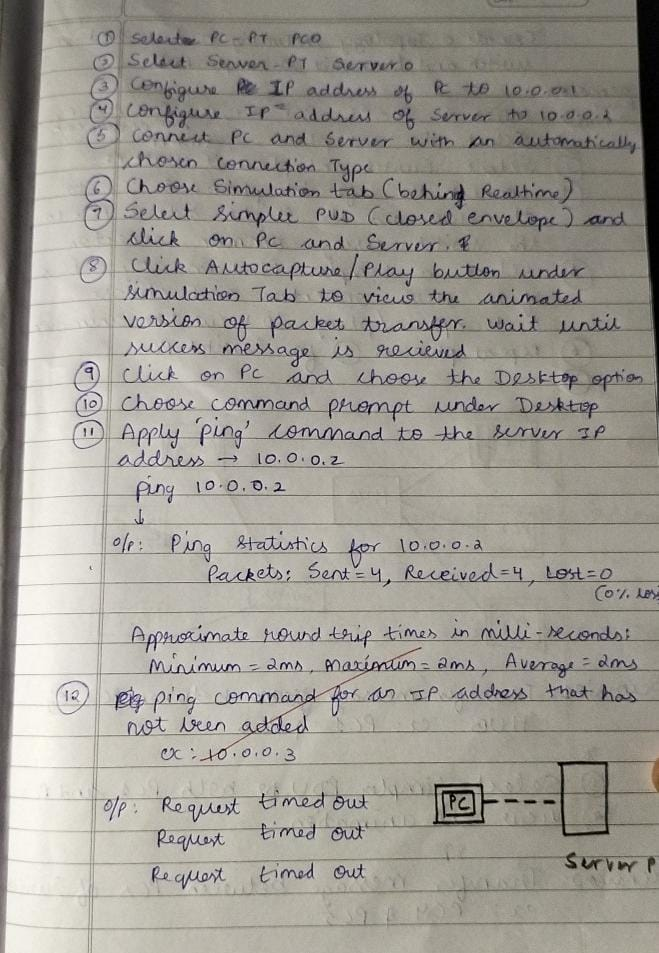 ① Selecter PC-PT PC0
② Select Server-PT Server 0
③ Configure IP address of PC to 10.0.0.1
④ Configure IP address of Server to 10.0.0.2
⑤ Connect PC and Server with an automatically
chosen connection Type
⑥ Choose Simulation tab (behing Realtime)
⑦ Select simplee PUD (closed envelope) and
click on PC and Server.
⑧ Click Autocapture/Play button under
simulation Tab to view the animated
version of packet transfer. wait until
success message is recieved
⑨ Click on PC and choose the Desktop option
⑩ Choose command prompt under Desktop
⑪ Apply 'ping' command to the server IP
address → 10.0.0.2
ping 10.0.0.2
↓
o/p: Ping statistics for 10.0.0.2
Packets: Sent=4, Received=4, Lost=0
(0% los
Approximate round trip times in milli-seconds:
Minimum = 2ms, Maximum = 2ms, Average = 2ms
⑫ ping command for an IP address that has
not been added
ex: 10.0.0.3
o/p: Request timed out
Request timed out
Request timed out
PC
Server P